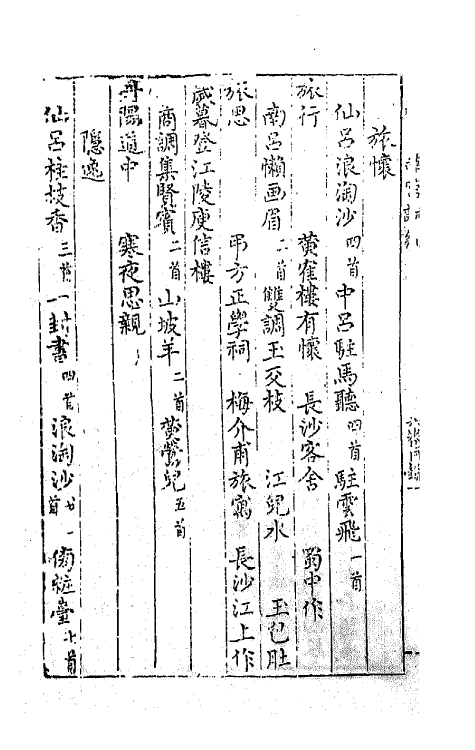 旅懷
仙呂浪淘沙四首中呂駐馬聽四首駐雲飛一首
旅行　黃隺樓有懷　長沙客舍　蜀中作
南呂懶画眉二首雙調玉交枝　江兒水　玉包肚
旅思　弔方正學祠　梅介甫旅寓　長沙江上作
歲暮登江陵庾信樓
商調集賢賓二首山坡羊二首黄鶯兒五首
丹陽道中　寒夜思親
隱逸
仙呂桂枝香三首一封書四首浪淘沙廿一首傍粧臺十首